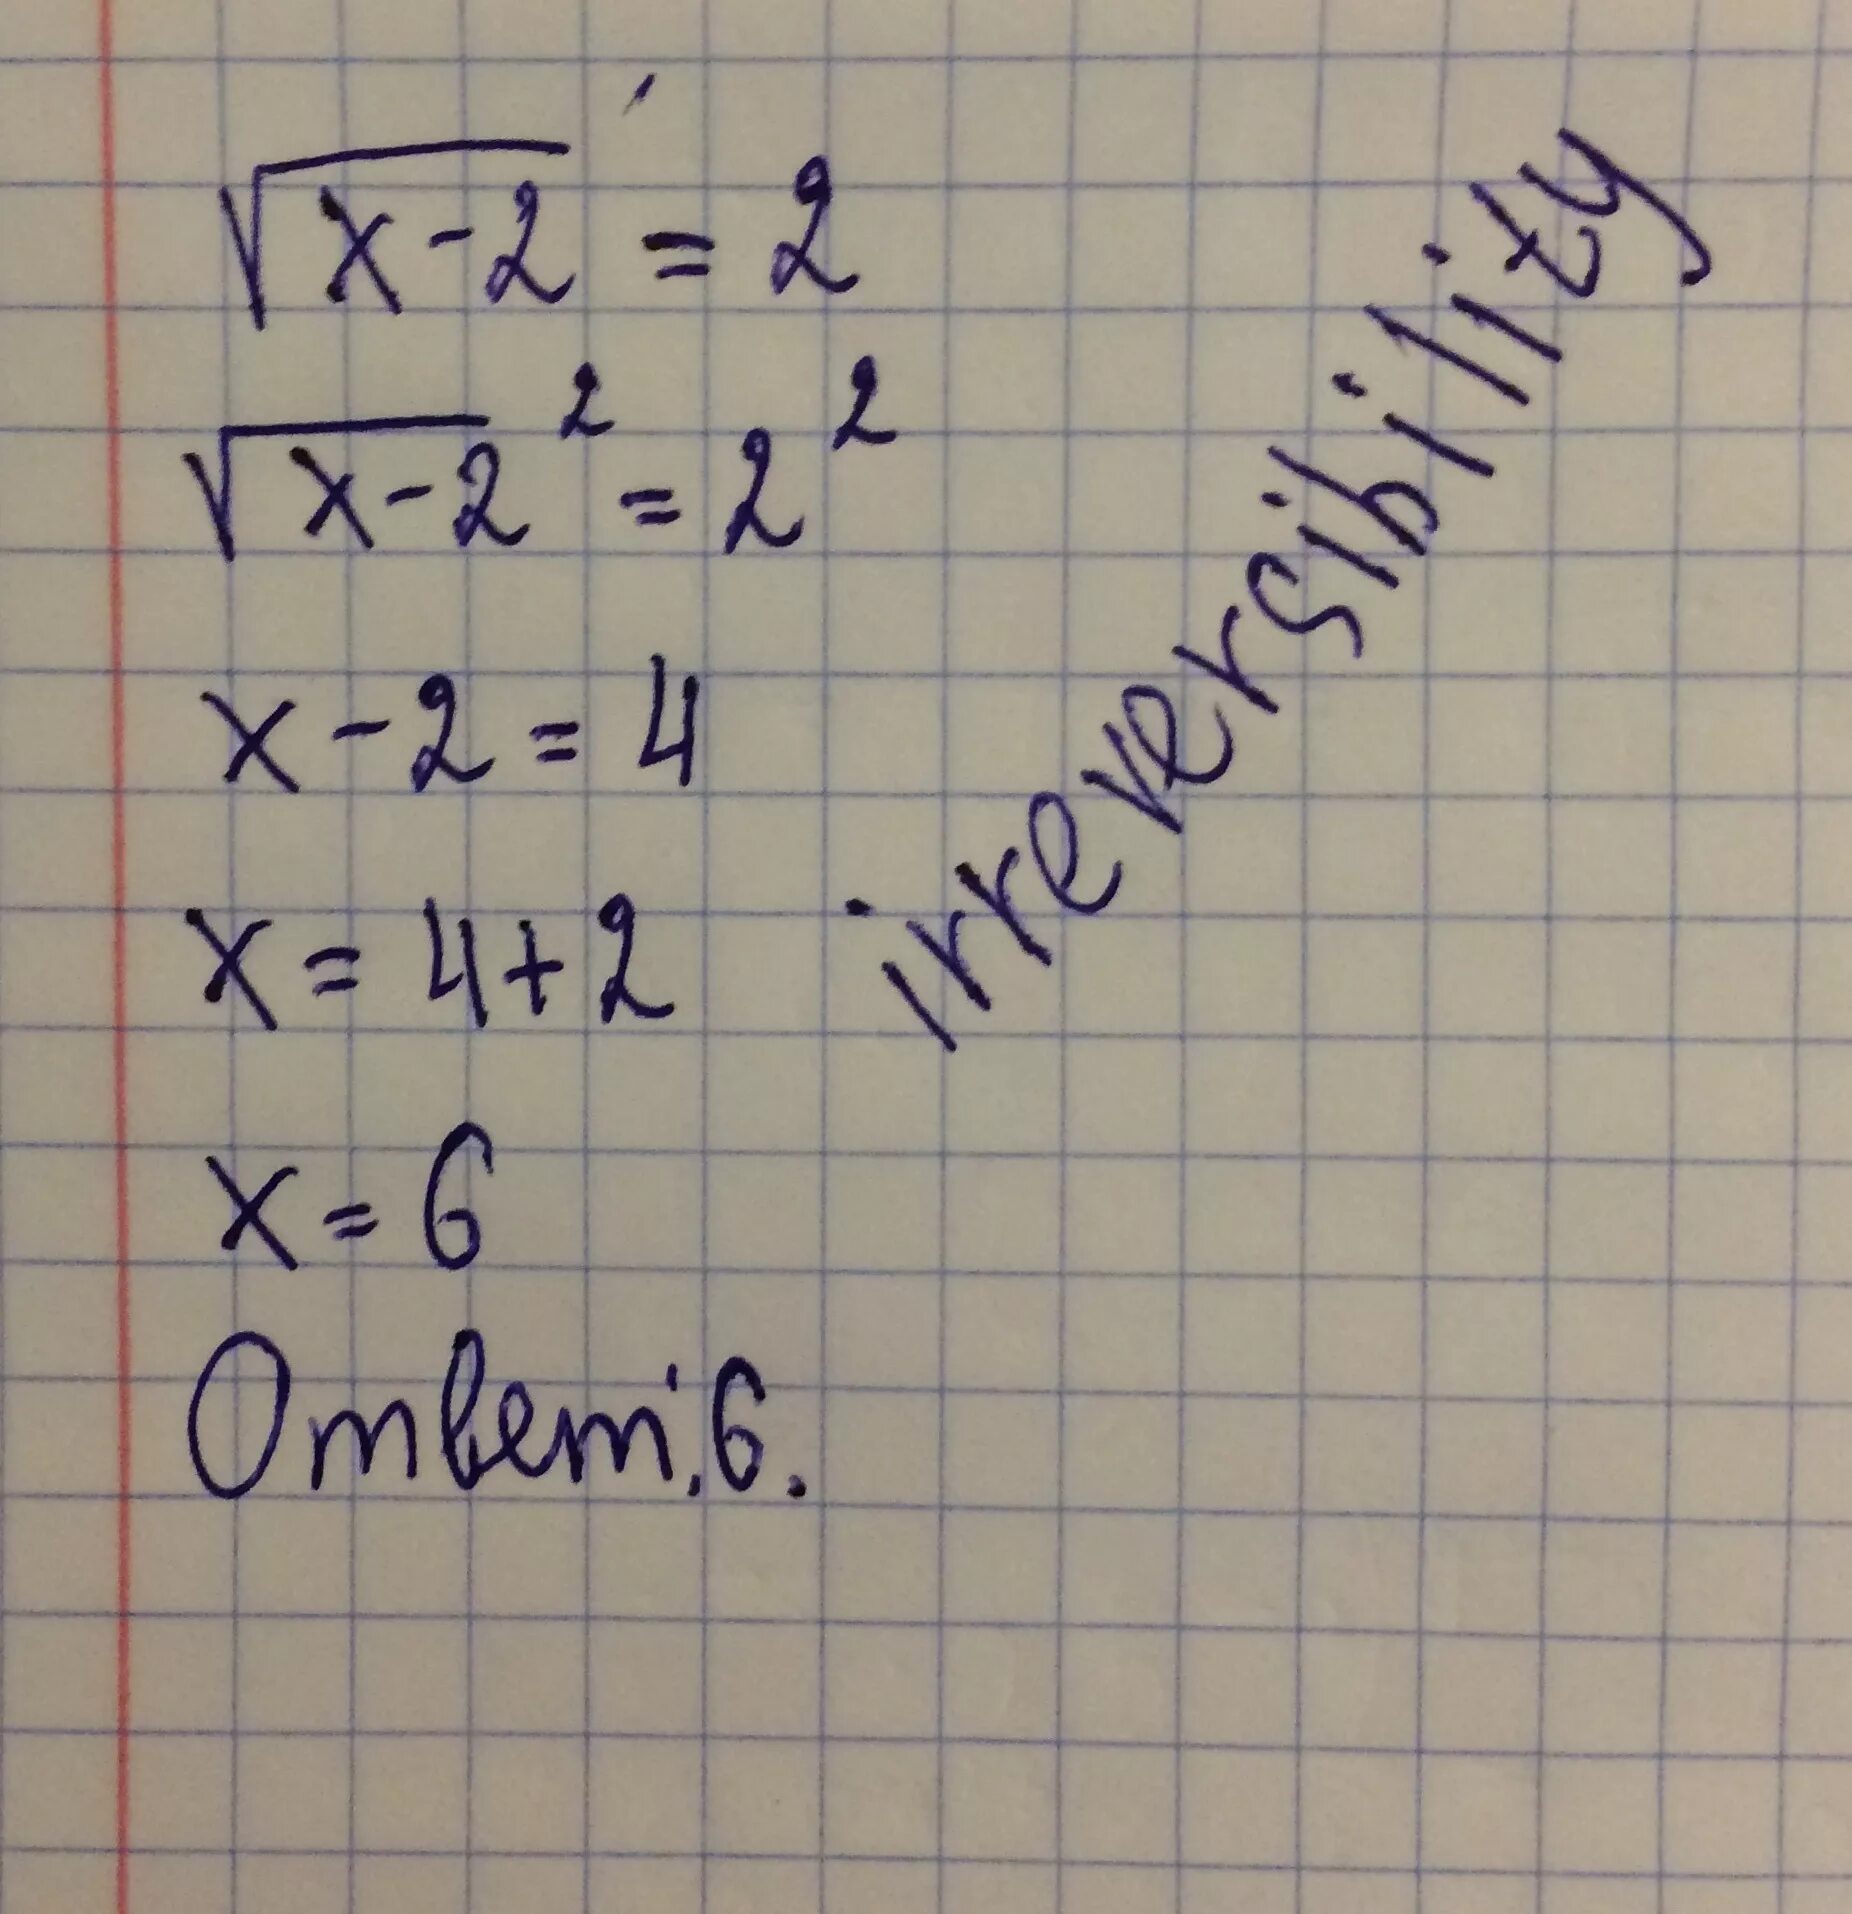 √x-2 = 2
√x-2² = 2²
x-2=4
x=4+2
x=6
Ответ: 6.
irreversibility